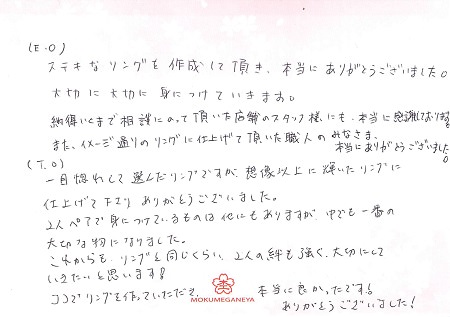 (E.O)
ステキなリングを作成して頂き、本当にありがとうございました。
大切に大切に身につけていきます。
納得いくまで相談にのって頂いた店舗のスタッフ様にも、本当に感謝しております。
また、イメージ通りのリングに仕上げて頂いた職人のみなさま、
本当にありがとうございました。
(T.O)
一目惚れして選んだリングですが、想像以上に輝いたリングに
仕上げて下さり ありがとうございました。
2人ペアで身につけているものは他にもありますが、中でも一番の
大切な物になりました。
これからも、リングと同じくらい、2人の絆も強く、大切にして
いきたいと思います!
ココでリングを作っていただき、本当に良かったです!
ありがとうございました!
MOKUMEGANEYA